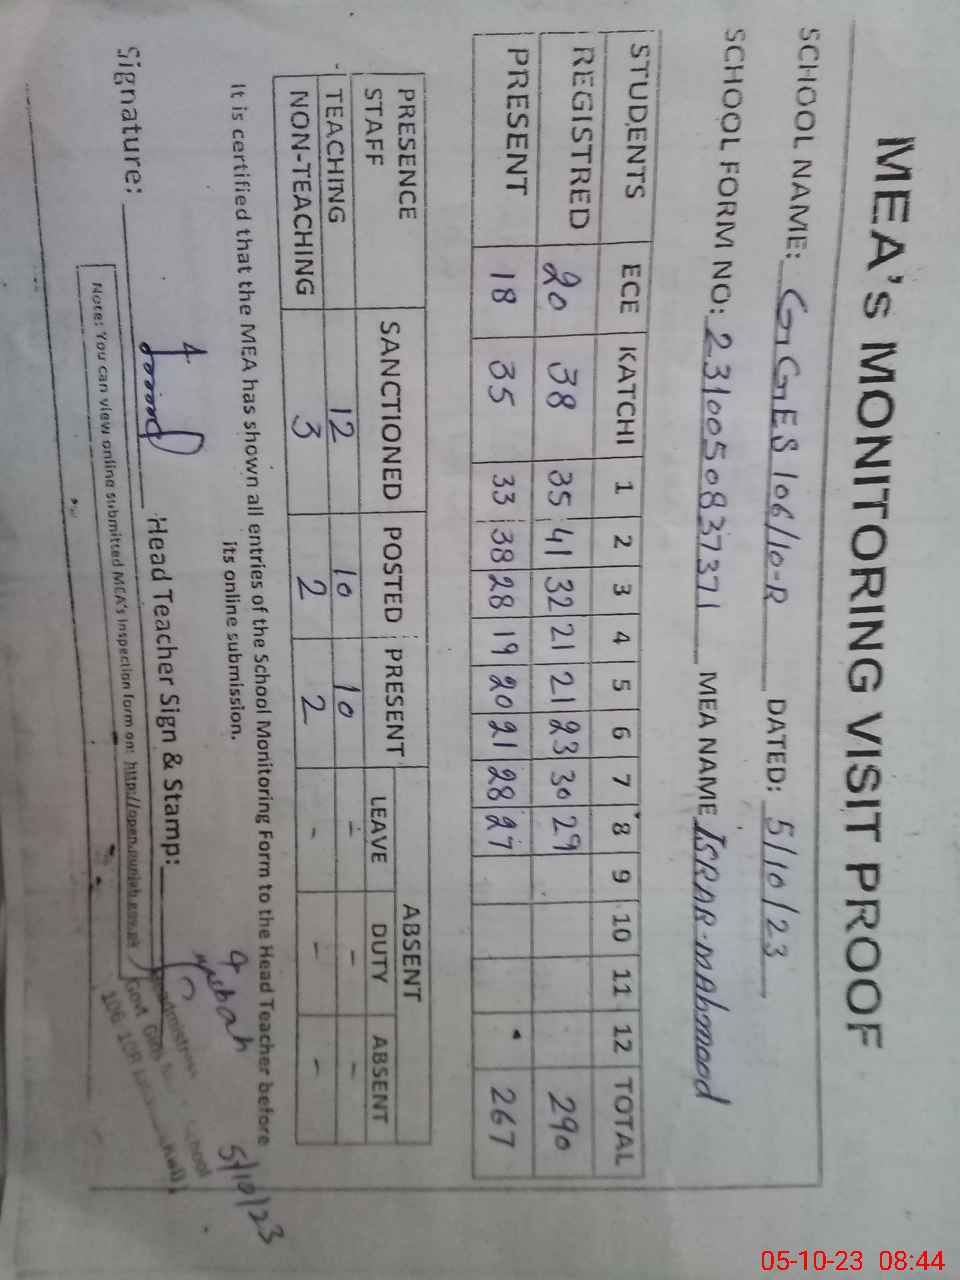 MEA'S MONITORING VISIT PROOF
SCHOOL NAME: GGES 106/10-R DATED: 5/10/23
SCHOOL FORM NO: 2310050837371 MEA NAME ISRAR MAHMOOD
STUDENTS ECE KATCHI 1 2 3 4 5 6 7 8 9 10 11 12 TOTAL
REGISTRED 20 38 35 41 32 21 21 23 30 29 290
PRESENT 18 35 33 38 28 19 20 21 28 27 267
PRESENCE SANCTIONED POSTED PRESENT ABSENT
STAFF LEAVE DUTY ABSENT
TEACHING 12 10 10 - - -
NON-TEACHING 3 2 2 - - -
It is certified that the MEA has shown all entries of the School Monitoring Form to the Head Teacher before
its online submission.
5/10/23
Signature: Head Teacher Sign & Stamp:
Headmistress
Govt Girls School
106 10R
Note: You can view online submitted MEA's inspection form on: http://open.punjab.gov.pk
05-10-23 08:44